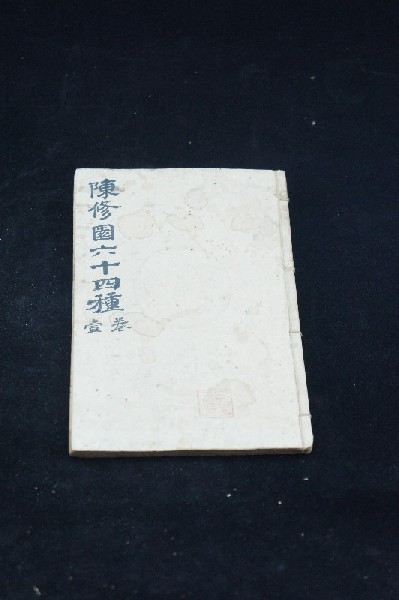 陳修園六十四種
卷壹